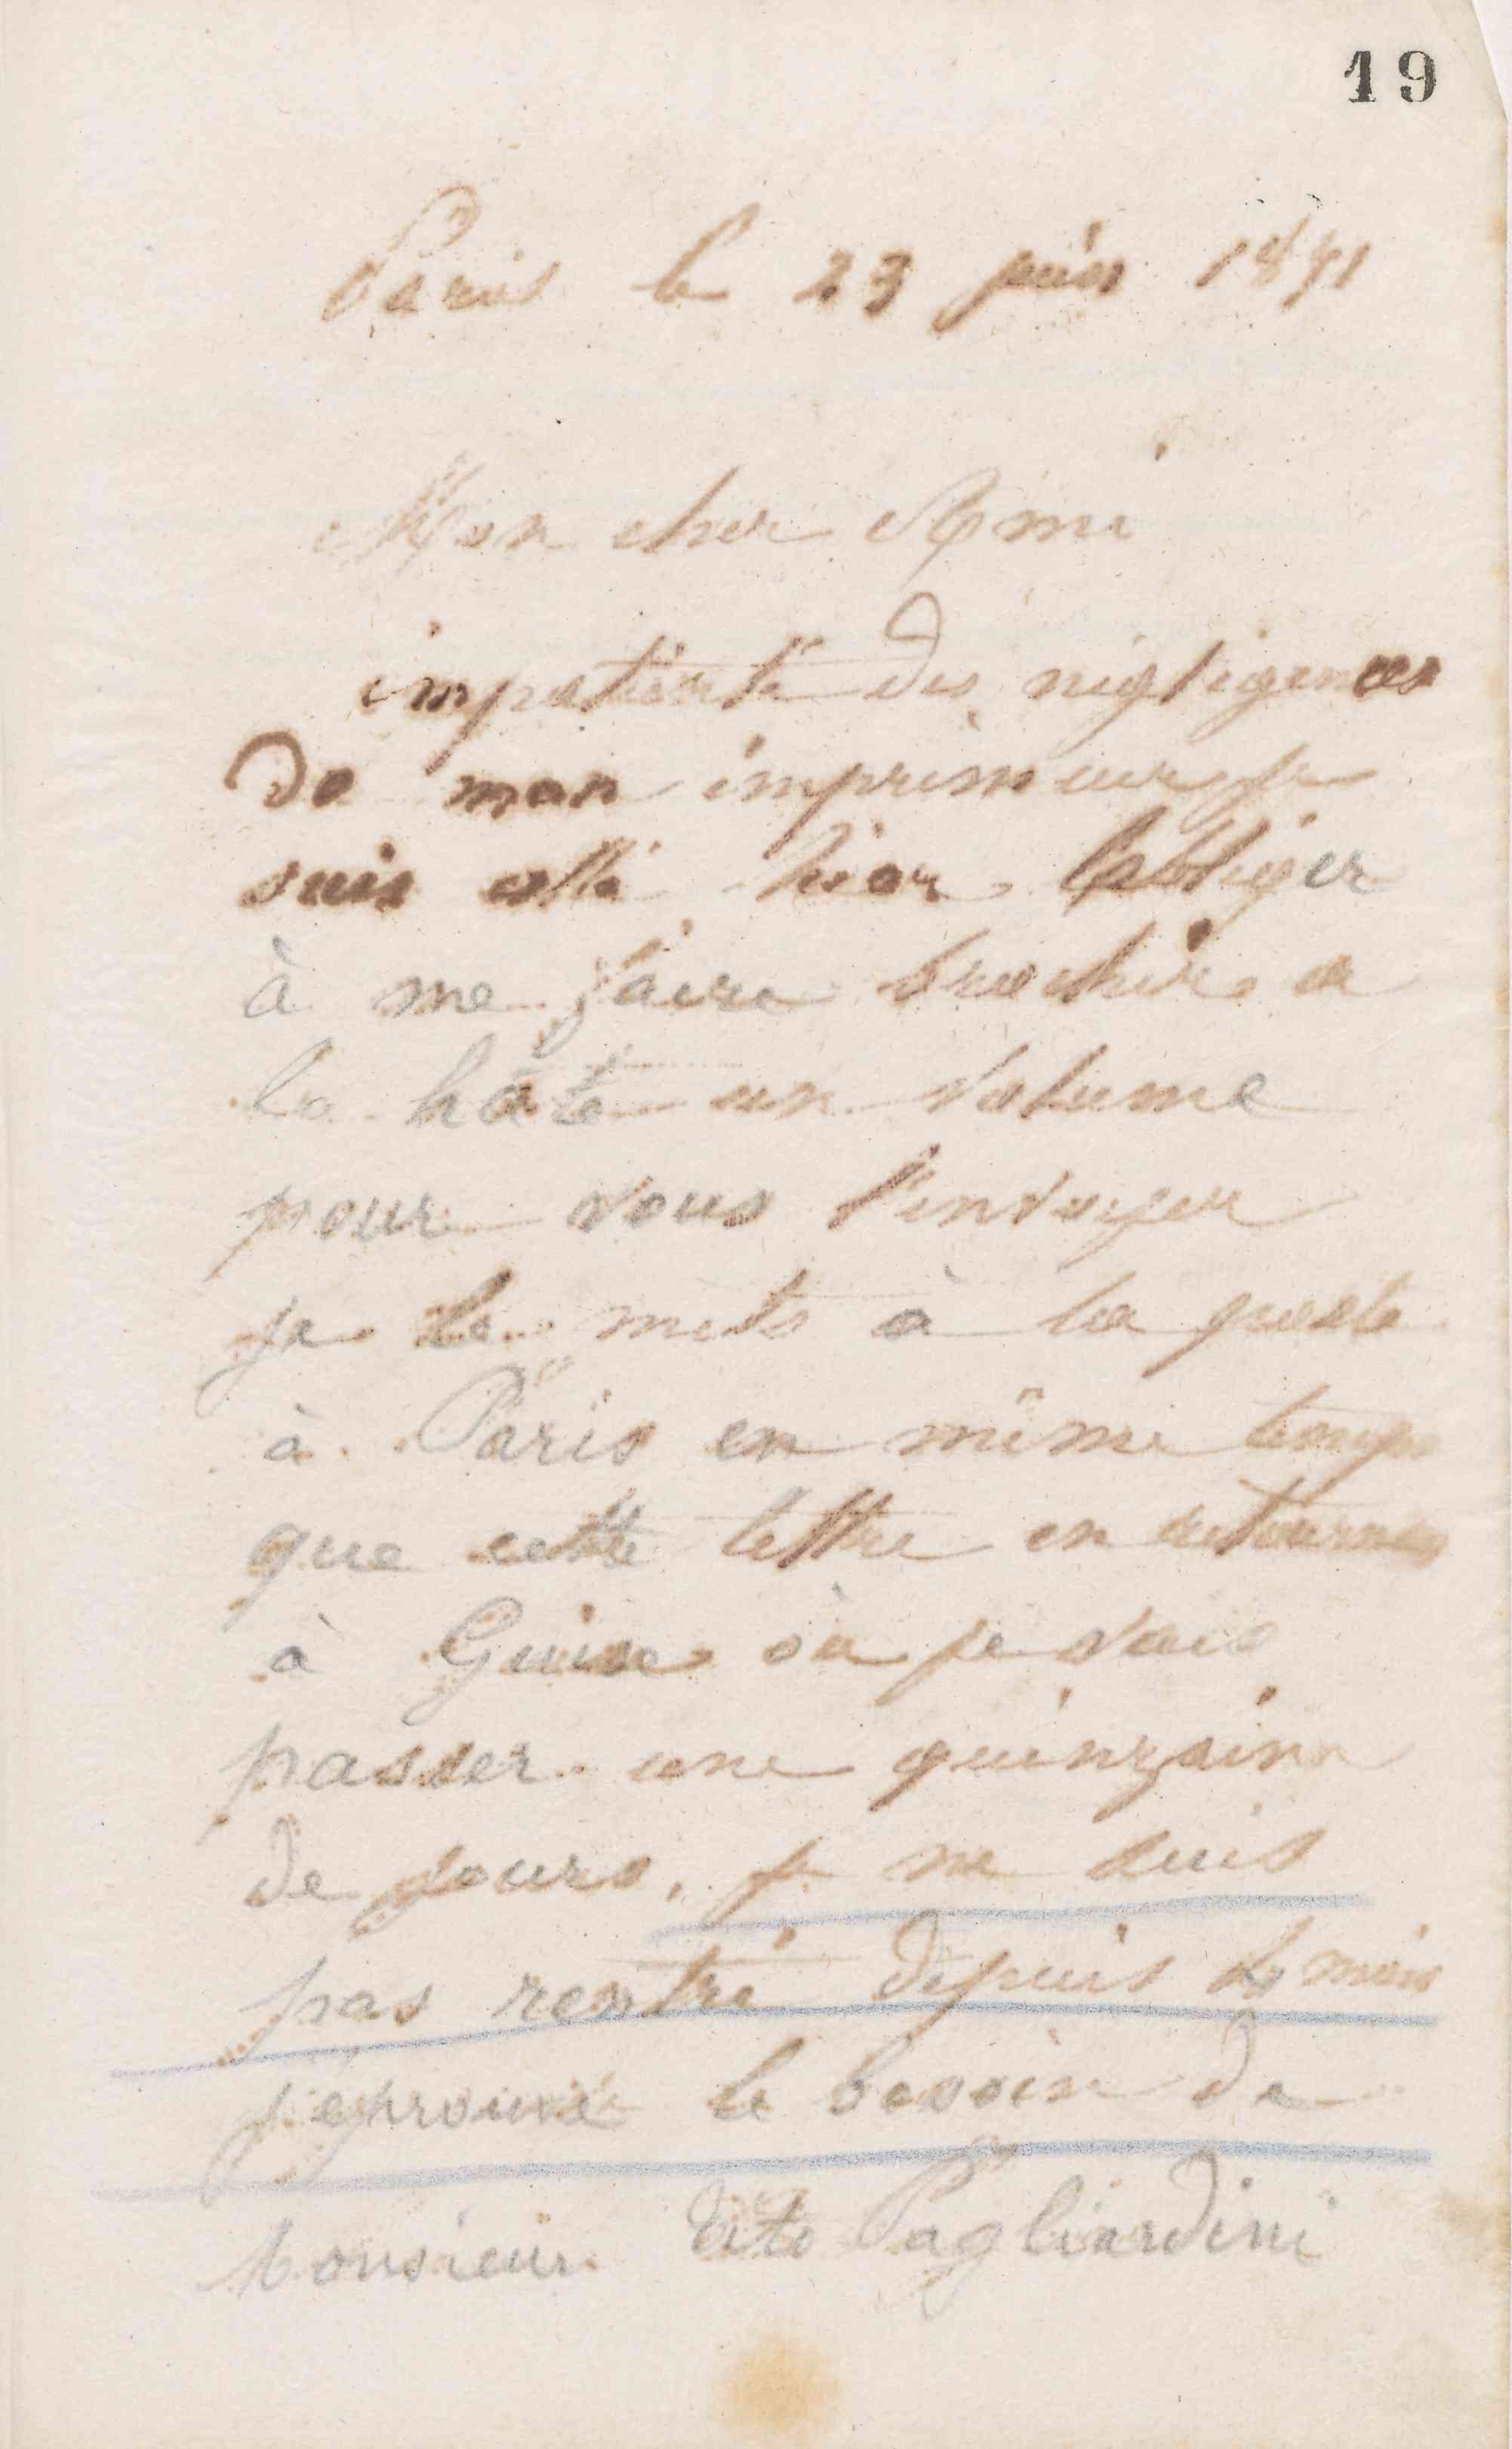 19
Paris le 23 juin 1871
Mon cher Ami
impatienté des négligences
de mon imprimeur je
suis allé hier l'obliger
à me faire brocher a
la hâte un volume
pour vous l'envoyer
je le mets à la poste
à Paris en même temps
que cette lettre en retournant
à Guise où je vais
passer une quinzaine
de jours, je ne suis
pas rentré depuis mois
j'éprouve le besoin de
Monsieur Tito Pagliardini